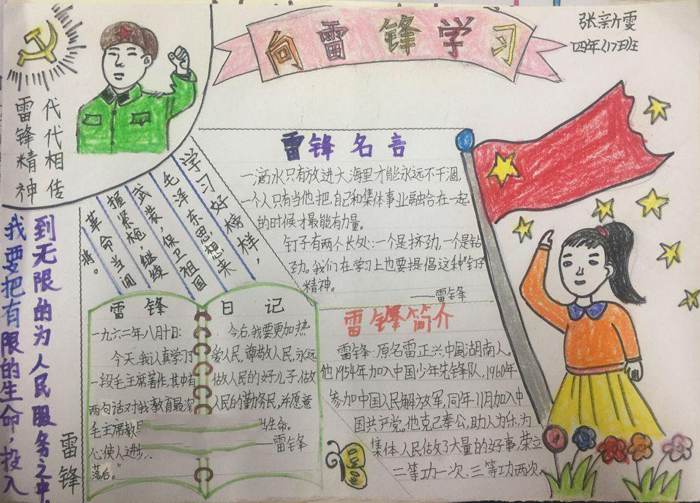 向雷锋学习
张新雯
四年(17)班
雷锋精神
代代相传
学习好榜样，
毛泽东思想来
武装，保卫祖国
握紧枪，继续
革命当闯
将。
雷锋名言
一滴水只有放进大海里才能永远不干涸，
一个人只有当他把自己和集体事业融合在一起
的时候才最能有力量。
钉子有两个长处：一个是挤劲，一个是钻
劲。我们在学习上也要提倡这种"钉子"
精神。
——雷锋
我要把有限的生命，投入
到无限的为人民服务之中
雷锋
雷锋
一九六二年八月十日：
今天，我认真学习了
一段毛主席著作，其中有
两句话对我教育最深
毛主席教
心使人进步
落后。
日记
今后，我要更加热
爱人民，尊敬人民，永远
做人民的好儿子，做
人民的勤务员，并愿意
生命。
——雷锋
雷锋简介
雷锋：原名雷正兴，中国湖南人。
他1954年加入中国少年先锋队，1960年
参加中国人民解放军，同年11月加入中
国共产党，他克己奉公，助人为乐，为
集体、人民做了大量的好事，荣立
二等功一次，三等功两次